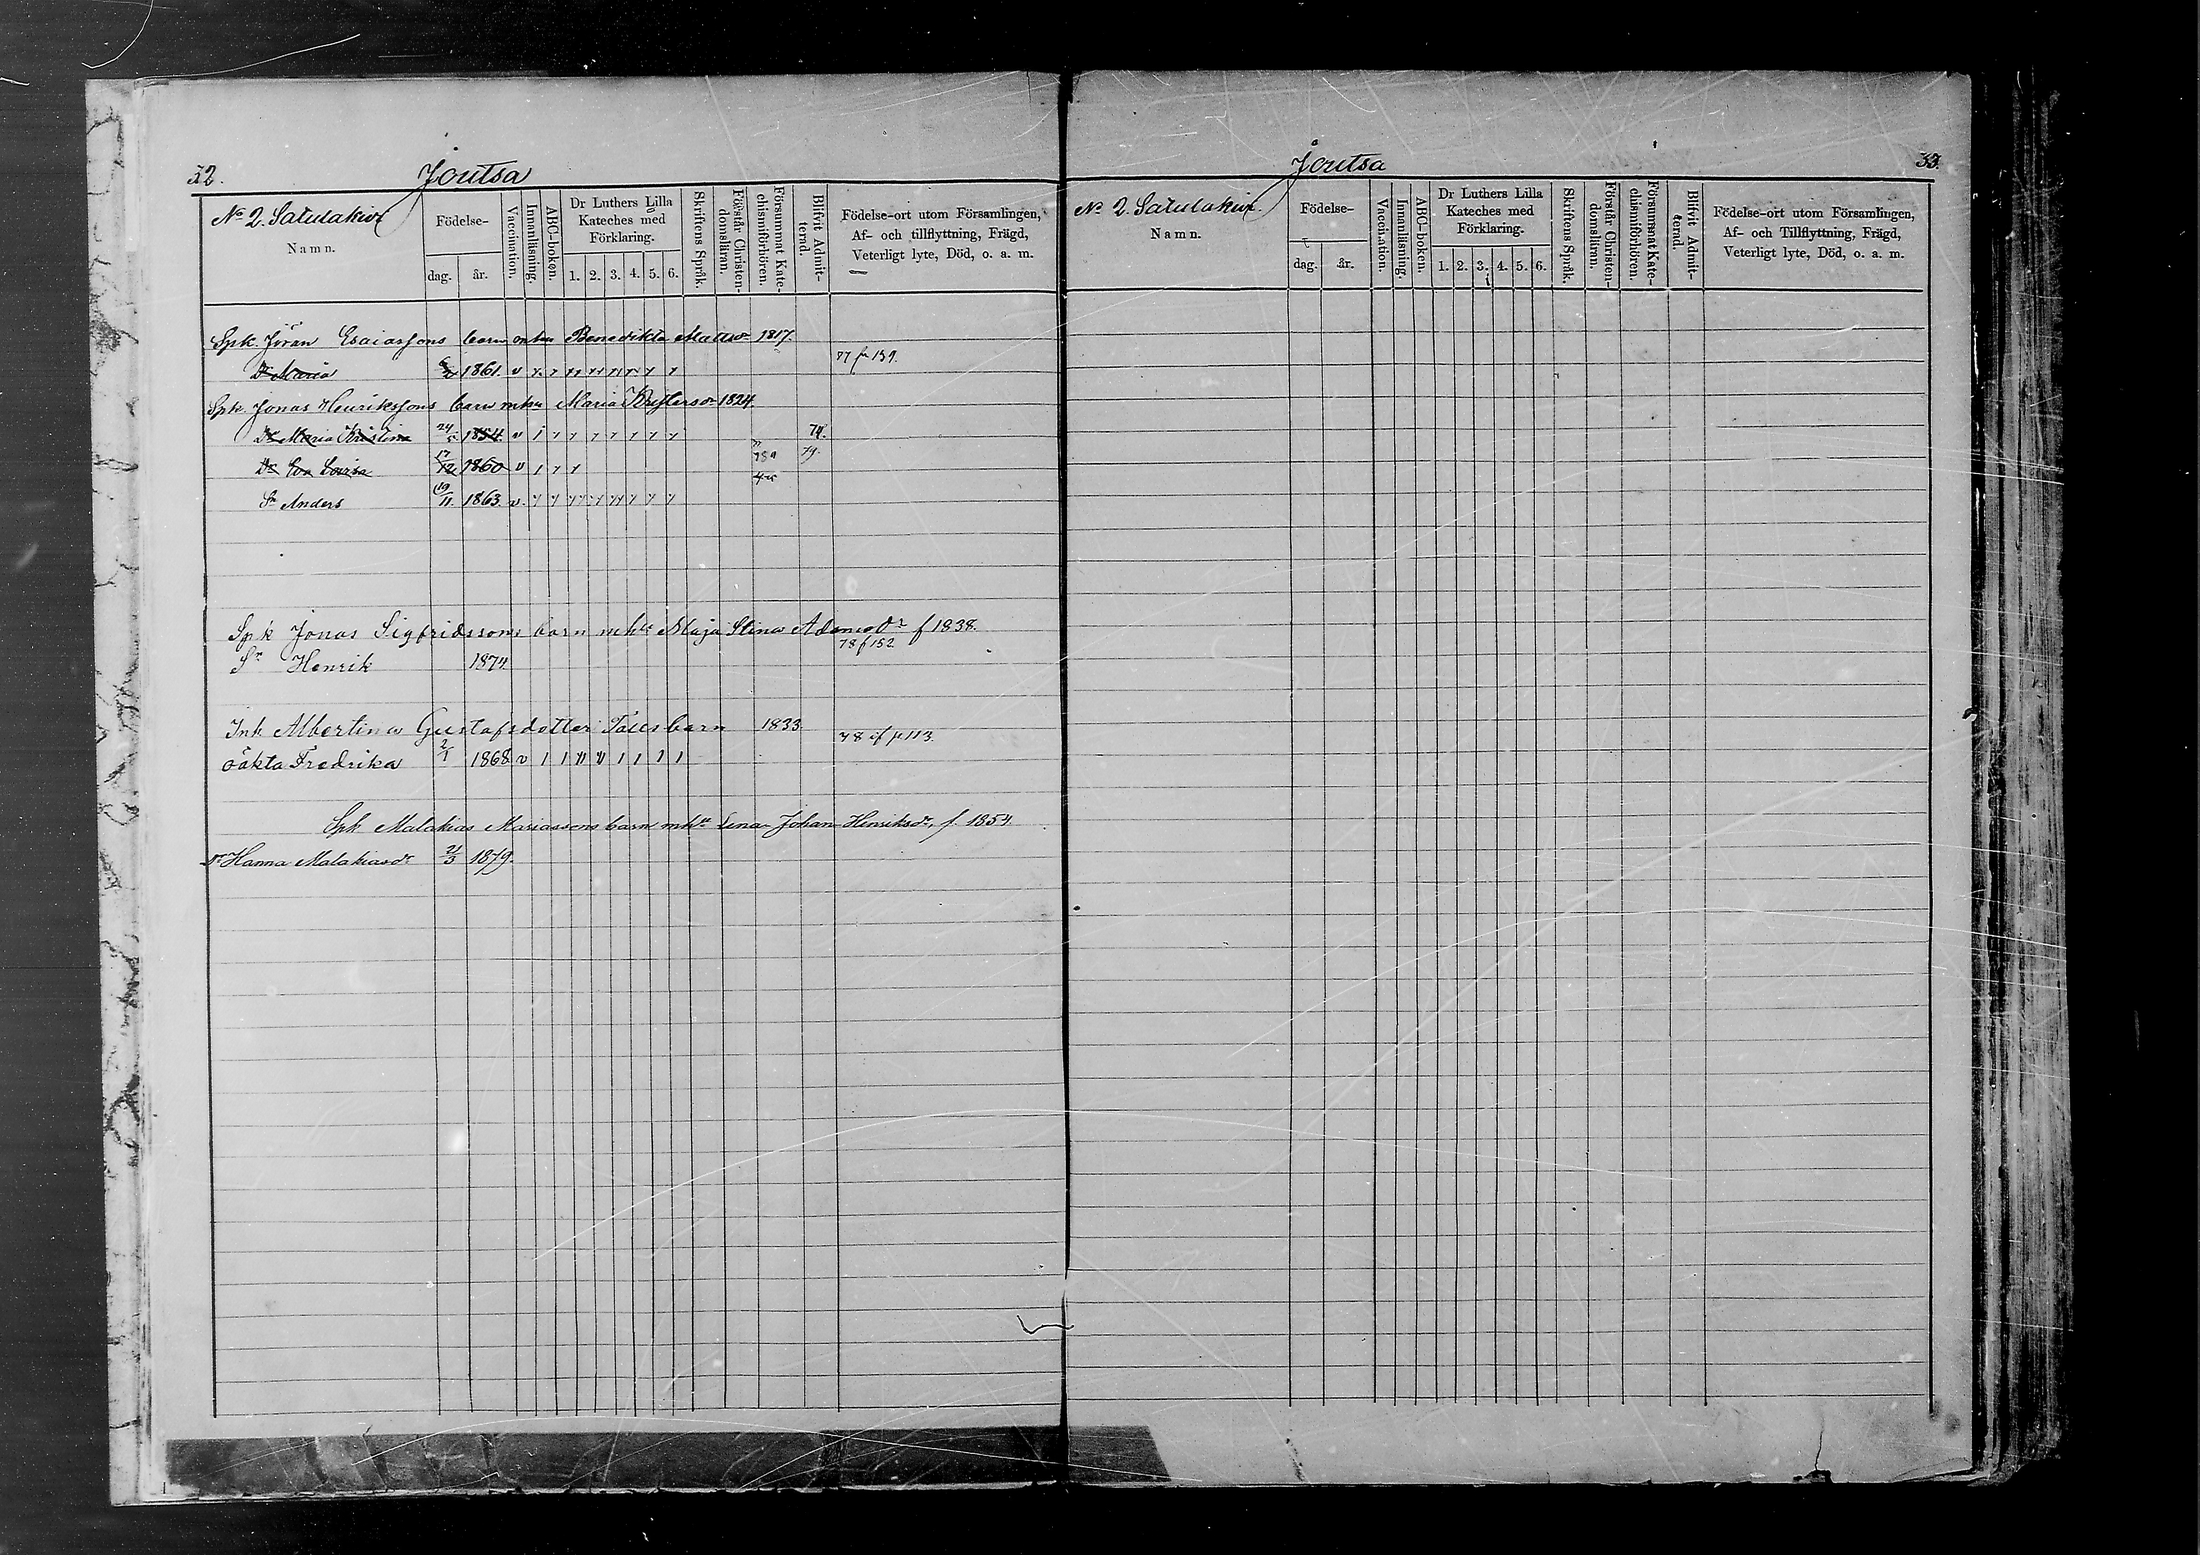 32. Joutsa
No 2. Satulakivi
Namn.
Födelse-
dag. år.
Vaccination.
Innanläsning.
ABC-boken.
Dr Luthers Lilla Kateches med Förklaring.
1. 2. 3. 4. 5. 6.
Skriftens Språk.
Förstår Christendomsläran.
Försummat Katechismiförhören.
Blifvit Admitterad.
Födelse-ort utom Församlingen,
Af- och tillflyttning, Frägd,
Veterligt lyte, Död, o. a. m.
Spk. Jöran Esaiassons barn m hu Benedikta Mattsdr 1817.
77 fr 139.
Dr Maria 1861. v
Spk Jonas Henrikssons barn m hu Maria Kristersdr 1824.
Dr Maria Kristina 24/5 1854. v 74.
Dr Eva Lovisa 17/12 1860 v 79.
Sn Anders 19/11. 1863. v.
Spk Jonas Sigfridssons barn m hu Maja Stina Adamsdr f 1838.
78 f 152
Sn Henrik 1874
Ink Albertina Gustafsdotter barn 1833.
78 p 113.
oäkta Fredrika 2/1 1868 v 1 1
Spk Malakias Mariassons barn m hu Lena Johan Henriksdr, f. 1854.
Dr Hanna Malakiasdr 21/3 1879.
Joutsa 33.
No 2. Satulakivi.
Namn.
Födelse-
dag. år.
Vaccination.
Innanläsning.
ABC-boken.
Dr Luthers Lilla Kateches med Förklaring.
1. 2. 3. 4. 5. 6.
Skriftens Språk.
Förstår Christendomsläran.
Försummat Katechismiförhören.
Blifvit Admitterad.
Födelse-ort utom Församlingen,
Af- och Tillflyttning, Frägd,
Veterligt lyte, Död, o. a. m.